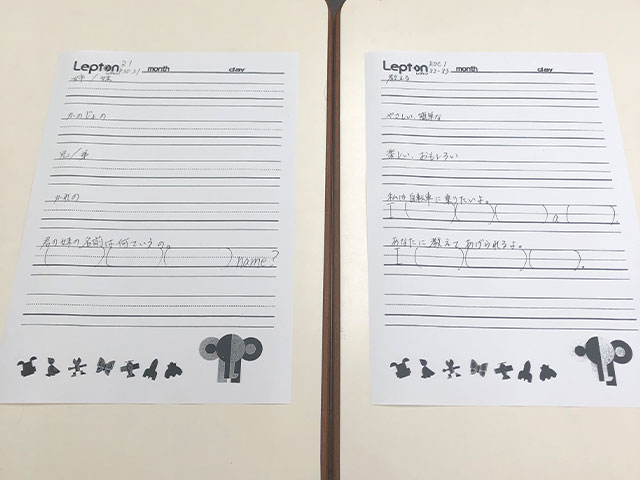 Lepton 21 month day
30-31
姉/妹
かのじょの
兄/弟
かれの
君の妹の名前は何ていうの。
( ) ( ) ( ) name?
Lepton month day
32-33
教える
やさしい、簡単な
楽しい、おもしろい
私は自転車に乗りたいよ。
I ( ) ( ) ( ) a ( ).
あなたに教えてあげられるよ。
I ( ) ( ) ( ).